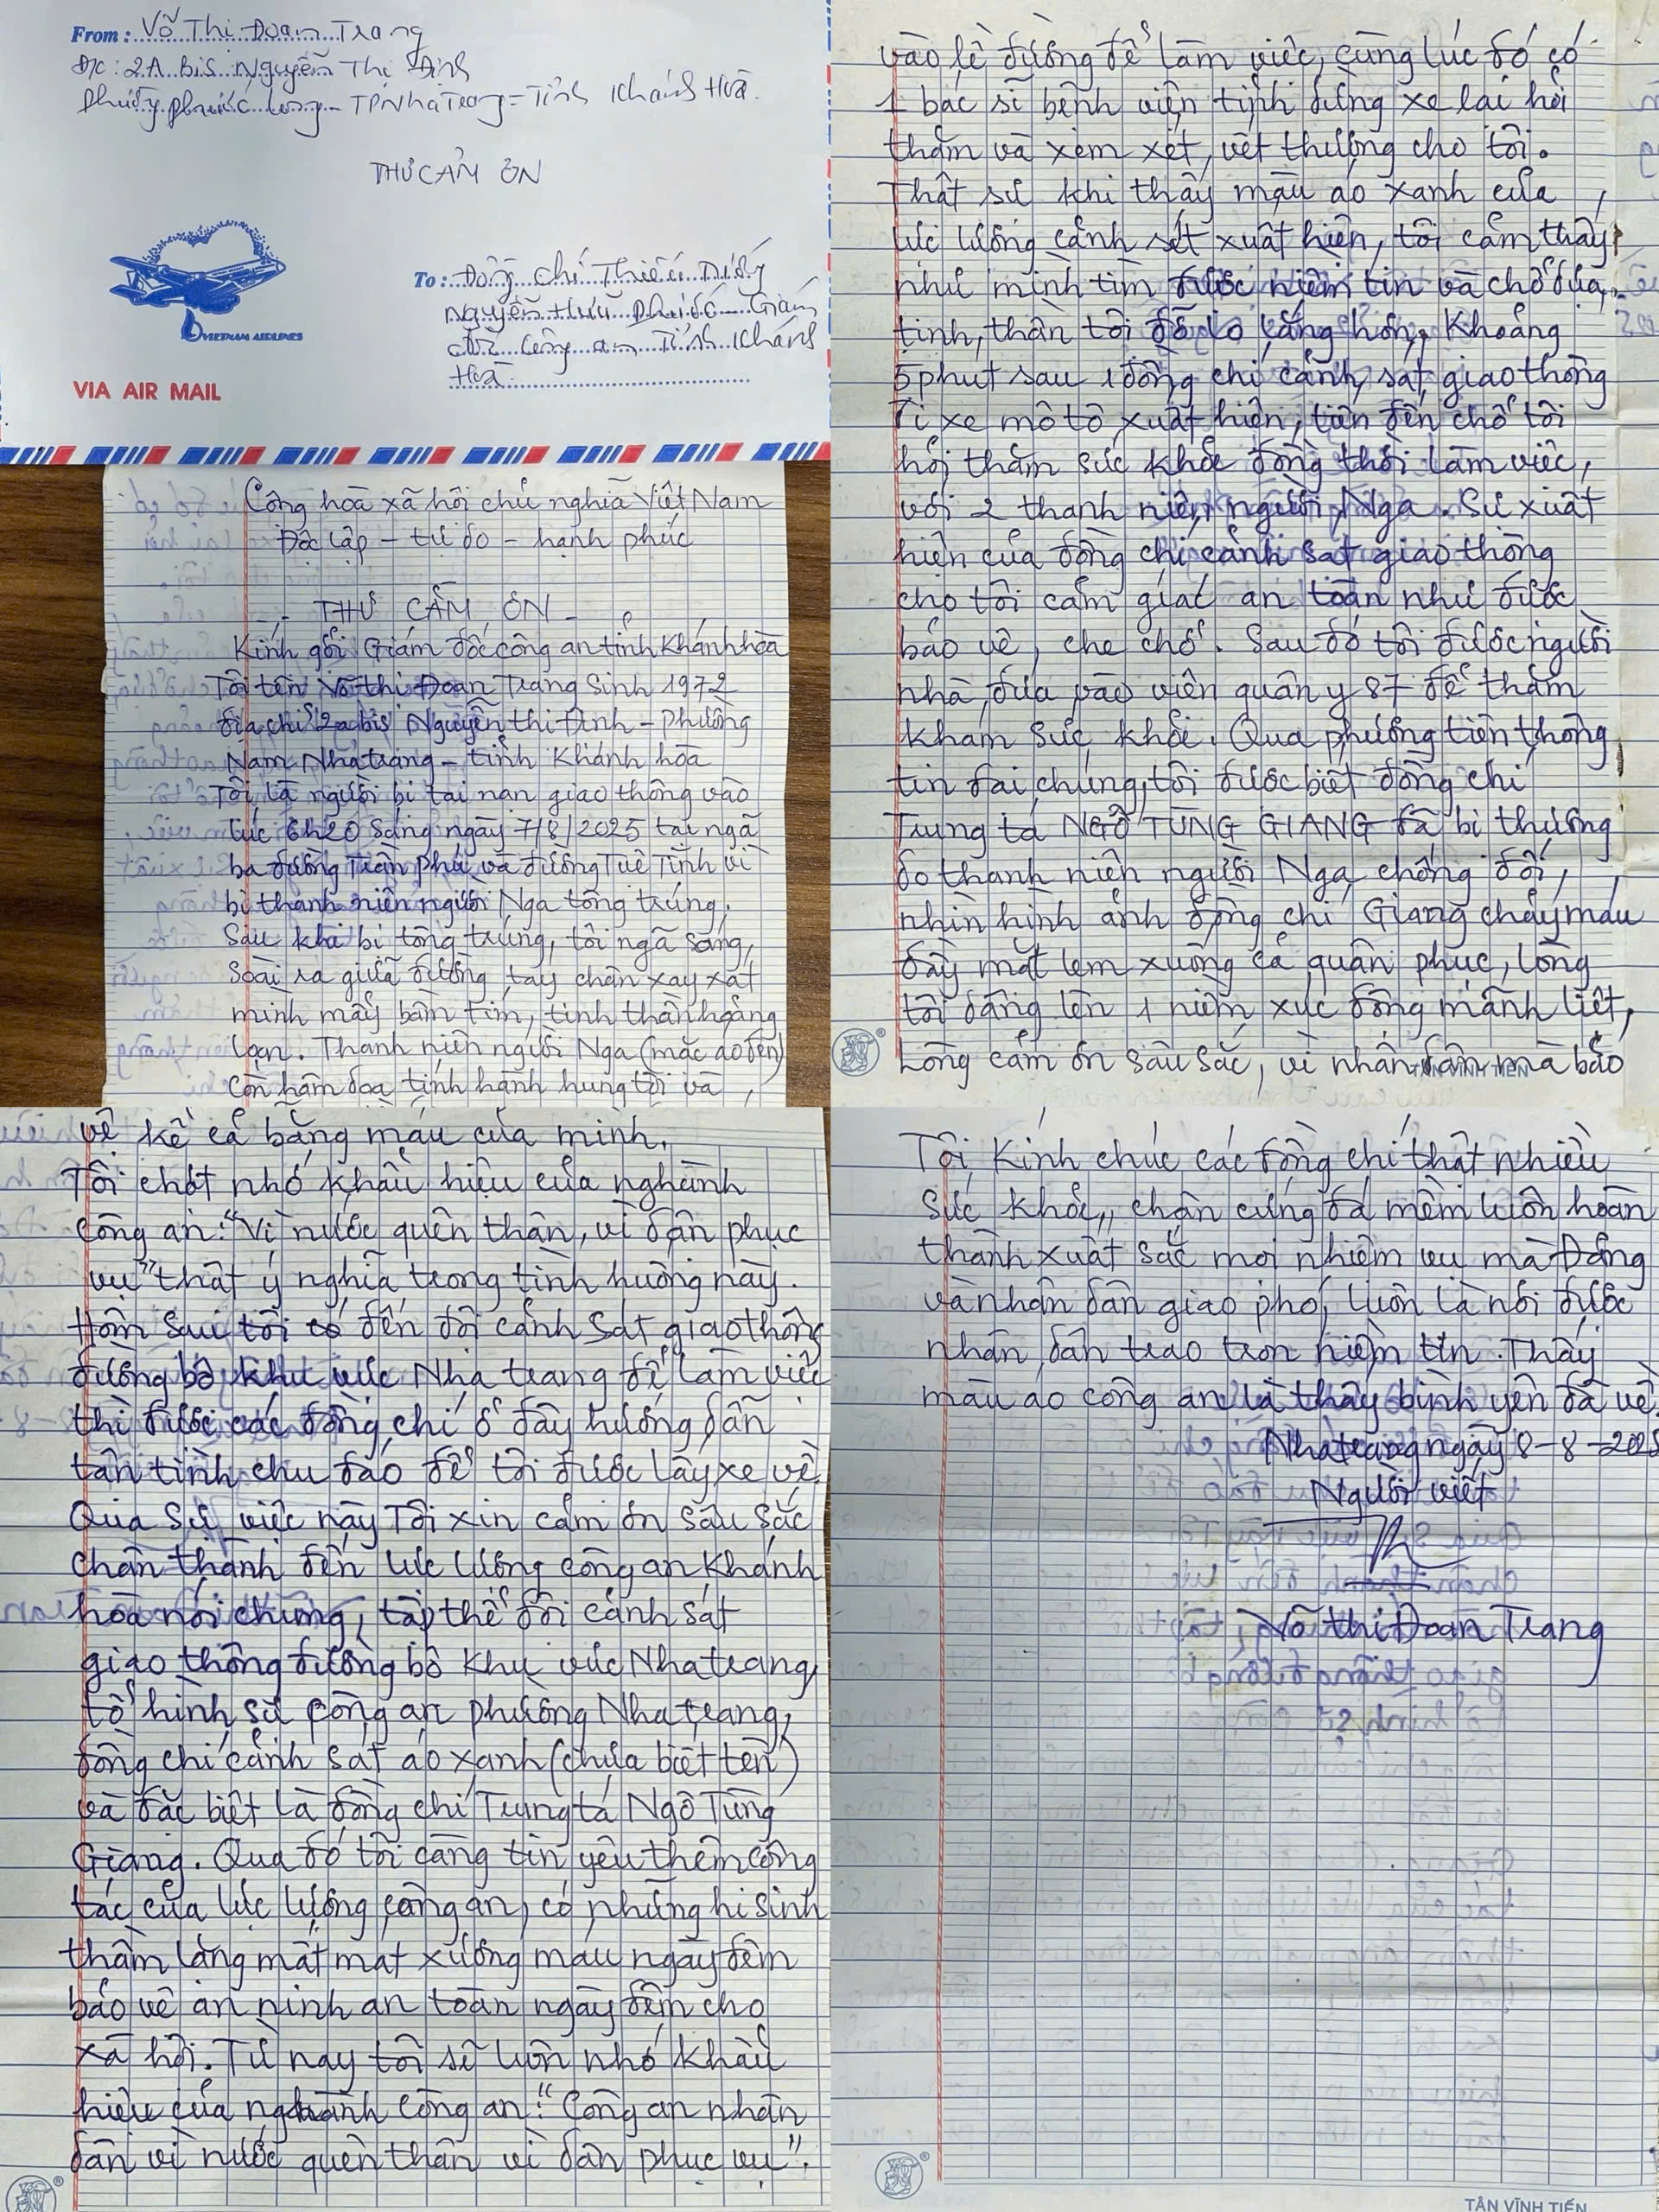 From: Võ Thị Đoan Trang
Đ/c: 2A Bis Nguyễn Thị Định
Phường Phước Long - TP Nha Trang - Tỉnh Khánh Hoà.
THƯ CẢM ƠN
VIETNAM AIRLINES
To: Đồng chí Thiếu tướng
Nguyễn Hữu Phước - Giám
đốc Công an Tỉnh Khánh
Hoà
VIA AIR MAIL
Cộng hoà xã hội chủ nghĩa Việt Nam
Độc lập - tự do - hạnh phúc
- THƯ CẢM ƠN -
Kính gởi Giám đốc công an tỉnh Khánh hòa
Tôi tên Võ thị Đoan Trang Sinh 1972
địa chỉ 2a bis Nguyễn thị Định - Phường
Nam Nha trang - tỉnh Khánh hòa
Tôi là người bị tai nạn giao thông vào
lúc 6h20 sáng ngày 7/8/2025 tại ngã
ba đường Trần Phú và đường Tuệ Tĩnh vì
bị thanh niên người Nga tông trúng.
Sau khi bị tông trúng, tôi ngã sõng,
soài ra giữa đường tay chân xay xát
mình mẩy bầm tím, tinh thần hoảng
loạn. Thanh niên người Nga (mặc áo đen)
còn hăm dọa tính hành hung tôi và
vào lề đường để làm việc, cùng lúc đó có
1 bác sĩ bệnh viện tỉnh dừng xe lại hỏi
thăm và xem xét, vết thương cho tôi.
Thật sự khi thấy mậu áo xanh của
lực lượng cảnh sát xuất hiện, tôi cảm thấy
như mình tìm được niềm tin và chỗ dựa,
tinh thần tôi đỡ lo lắng hơn. Khoảng
5 phút sau 1 đồng chí cảnh sát giao thông
đi xe mô tô xuất hiện, tiến đến chỗ tôi
hỏi thăm sức khỏe đồng thời làm việc,
với 2 thanh niên người Nga. Sự xuất
hiện của đồng chí cảnh sát giao thông
cho tôi cảm giác an toàn như được
bảo vệ, che chở. Sau đó tôi được người
nhà đưa vào viện quân y 87 để thăm
khám sức khỏe. Qua phương tiện thông
tin đại chúng tôi được biết đồng chí
Trung tá NGÔ TÙNG GIANG đã bị thương
do thanh niên người Nga chống đối,
nhìn hình ảnh đồng chí Giang chảy máu
đầy mặt lem xuống cả quân phục, lòng
tôi dâng lên 1 niềm xúc động mãnh liệt,
Lòng cảm ơn sâu sắc, vì nhân dân mà bảo
TÂN VĨNH TIẾN
vệ kể cả bằng máu của mình.
Tôi chợt nhớ khẩu hiệu của nghành
công an: "Vì nước quên thân, vì dân phục
vụ" thật ý nghĩa trong tình huống này.
Hôm sau tôi có đến đội cảnh sát giao thông
đường bộ khu vực Nha trang để làm việc
thì được các đồng chí ở đây hướng dẫn
tận tình chu đáo để tôi được lấy xe về.
Qua sự việc này Tôi xin cảm ơn sâu sắc
chân thành đến lực lượng công an Khánh
hòa nói chung, tập thể đội cảnh sát
giao thông đường bộ khu vực Nha trang,
tổ hình sự công an phường Nha trang,
đồng chí cảnh sát áo xanh (chưa biết tên)
và đặc biệt là đồng chí Trung tá Ngô Tùng
Giang. Qua đó tôi càng tin yêu thêm công
tác của lực lượng công an, có những hi sinh
thầm lặng mất mát xương máu ngày đêm
bảo vệ an ninh an toàn ngày đêm cho
xã hội. Từ nay tôi sẽ luôn nhớ khẩu
hiệu của nghành công an: "Công an nhân
dân vì nước quên thân vì dân phục vụ".
Tôi Kính chúc các đồng chí thật nhiều
sức khỏe, chân cứng đá mềm luôn hoàn
thành xuất sắc mọi nhiệm vụ mà Đảng
và nhân dân giao phó, luôn là nơi được
nhân dân trao trọn niềm tin. Thấy
màu áo công an là thấy bình yên đã về.
Nha trang ngày 8-8-2025
Người viết
Võ thị Đoan Trang
TÂN VĨNH TIẾN